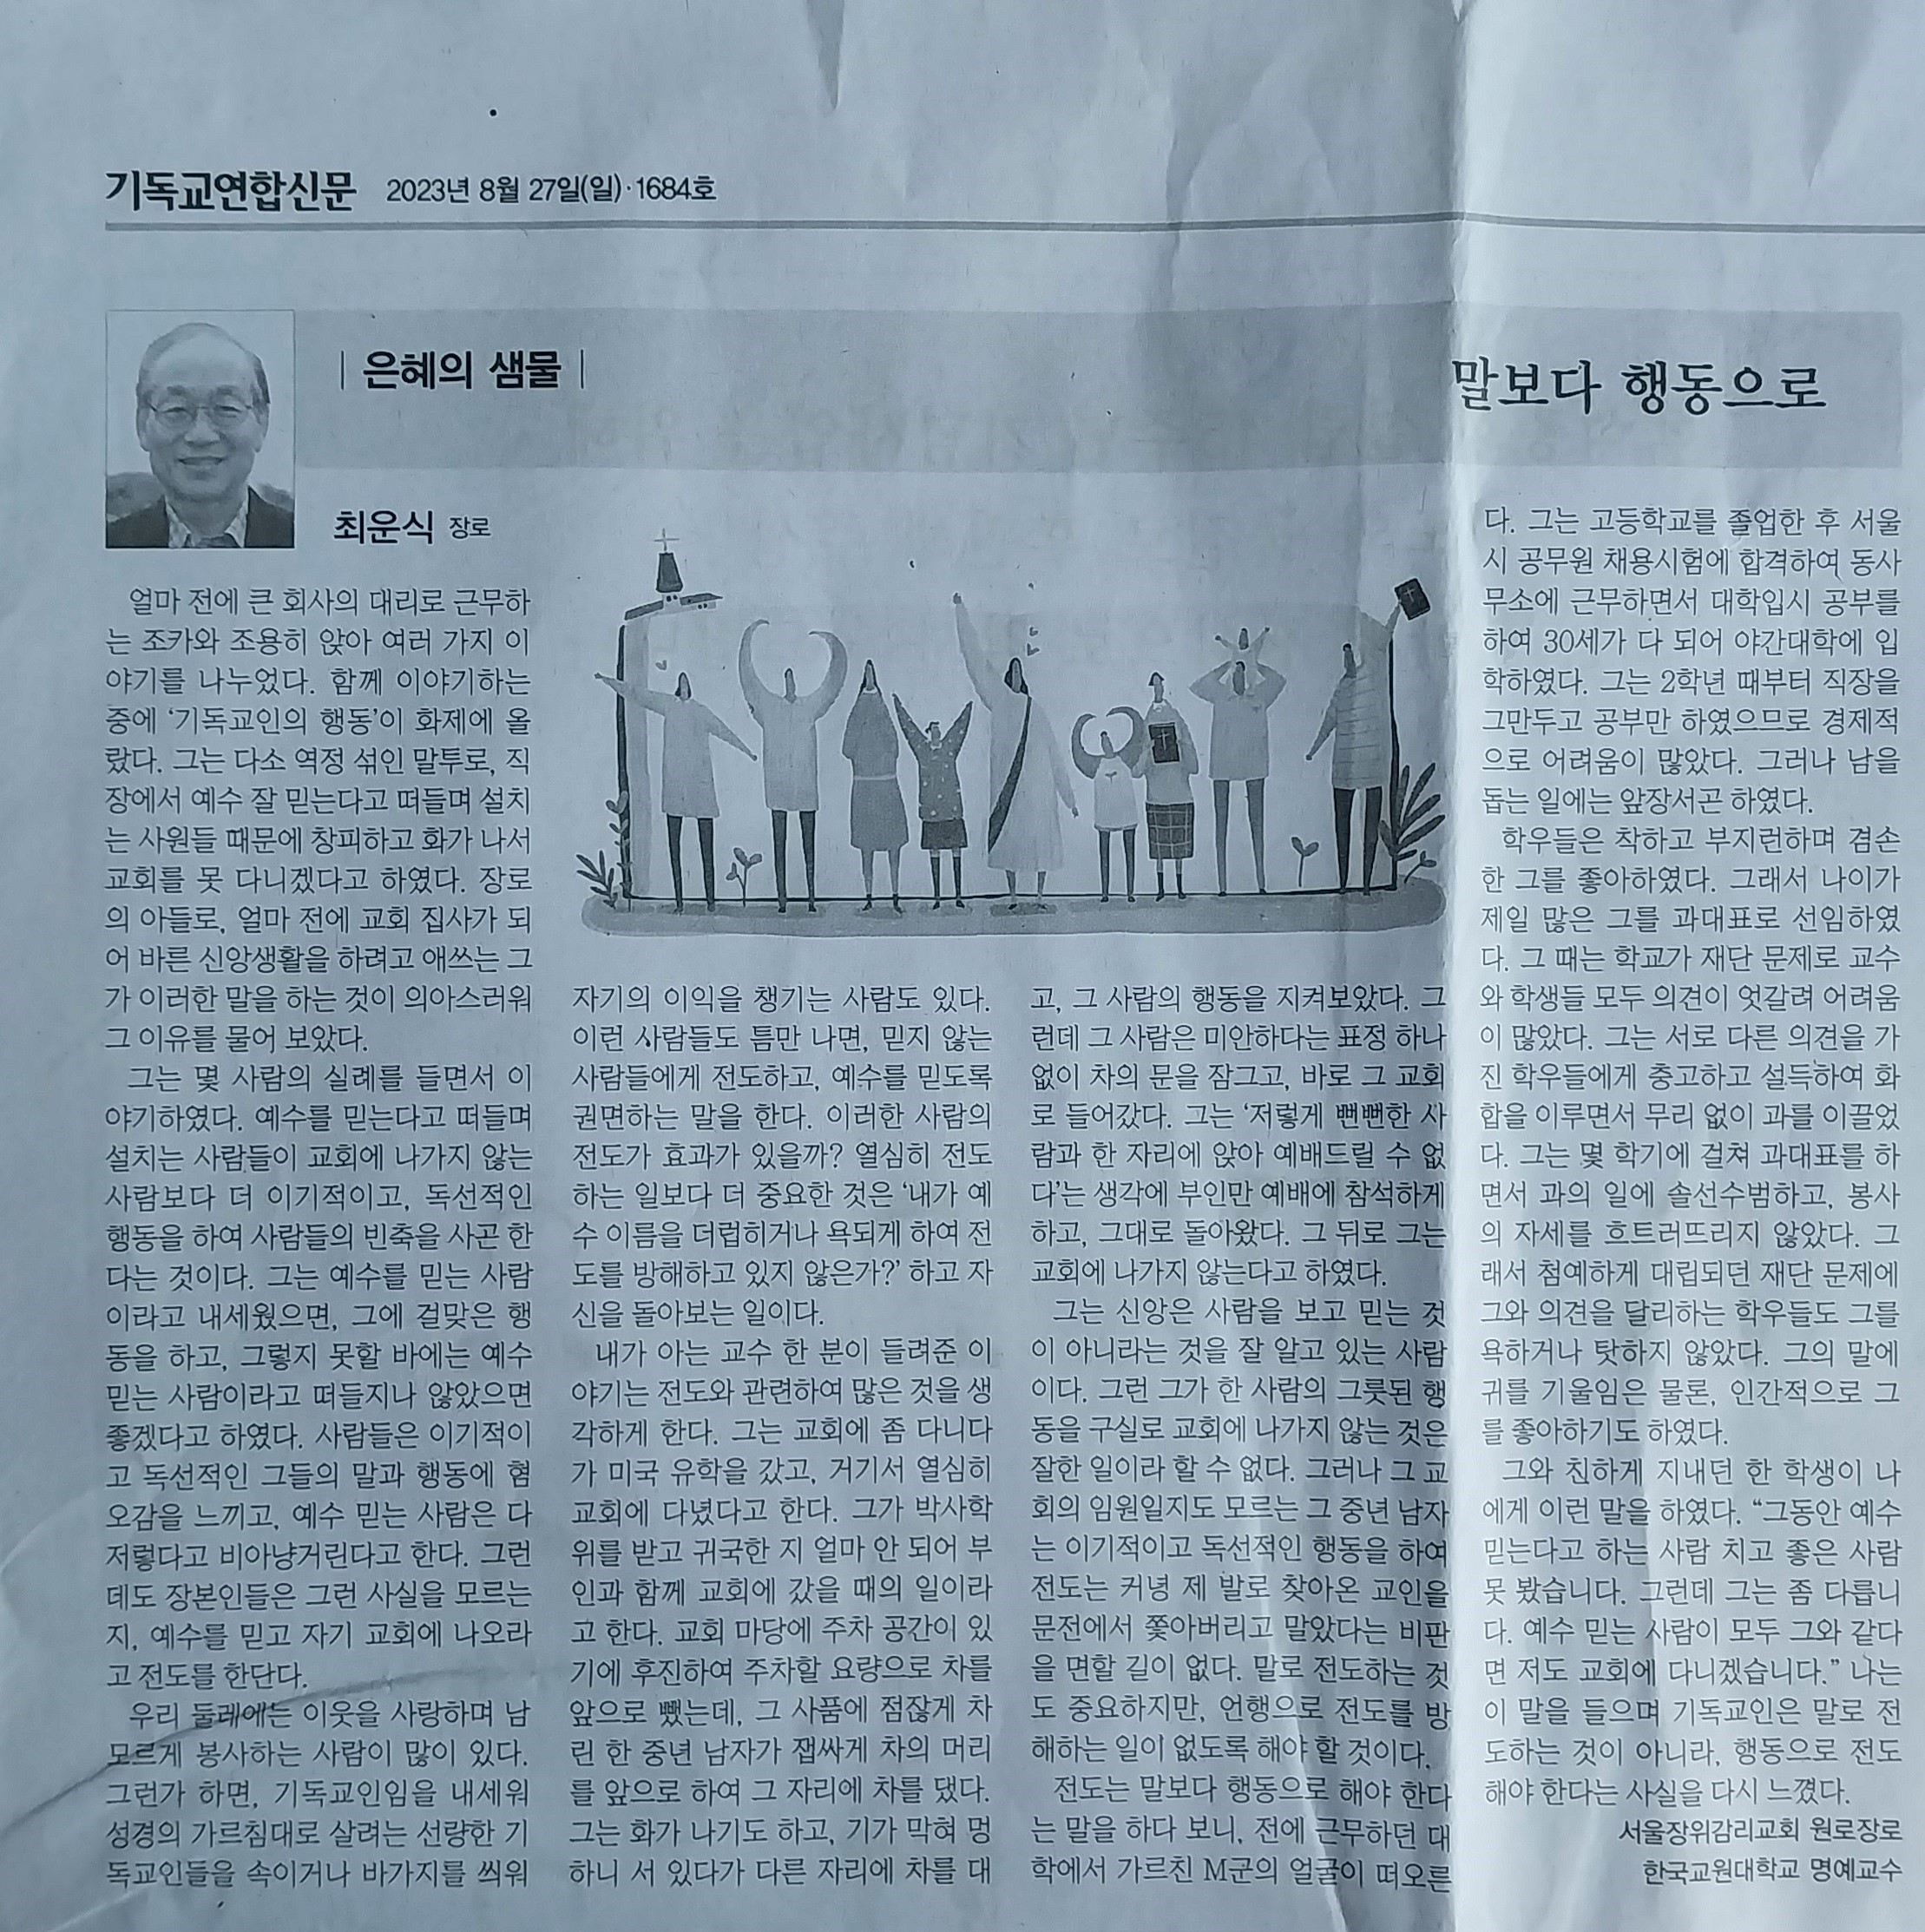 기독교연합신문 2023년 8월 27일(일)·1684호
| 은혜의 샘물 |
말보다 행동으로
최운식 장로
얼마 전에 큰 회사의 대리로 근무하
는 조카와 조용히 앉아 여러 가지 이
야기를 나누었다. 함께 이야기하는
중에 ‘기독교인의 행동’이 화제에 올
랐다. 그는 다소 역정 섞인 말투로, 직
장에서 예수 잘 믿는다고 떠들며 설치
는 사원들 때문에 창피하고 화가 나서
교회를 못 다니겠다고 하였다. 장로
의 아들로, 얼마 전에 교회 집사가 되
어 바른 신앙생활을 하려고 애쓰는 그
가 이러한 말을 하는 것이 의아스러워
그 이유를 물어 보았다.
그는 몇 사람의 실례를 들면서 이
야기하였다. 예수를 믿는다고 떠들며
설치는 사람들이 교회에 나가지 않는
사람보다 더 이기적이고, 독선적인
행동을 하여 사람들의 빈축을 사곤 한
다는 것이다. 그는 예수를 믿는 사람
이라고 내세웠으면, 그에 걸맞은 행
동을 하고, 그렇지 못할 바에는 예수
믿는 사람이라고 떠들지나 않았으면
좋겠다고 하였다. 사람들은 이기적이
고 독선적인 그들의 말과 행동에 혐
오감을 느끼고, 예수 믿는 사람은 다
저렇다고 비아냥거린다고 한다. 그런
데도 장본인들은 그런 사실을 모르는
지, 예수를 믿고 자기 교회에 나오라
고 전도를 한단다.
우리 둘레에는 이웃을 사랑하며 남
모르게 봉사하는 사람이 많이 있다.
그런가 하면, 기독교인임을 내세워
성경의 가르침대로 살려는 선량한 기
독교인들을 속이거나 바가지를 씌워
자기의 이익을 챙기는 사람도 있다.
이런 사람들도 틈만 나면, 믿지 않는
사람들에게 전도하고, 예수를 믿도록
권면하는 말을 한다. 이러한 사람의
전도가 효과가 있을까? 열심히 전도
하는 일보다 더 중요한 것은 ‘내가 예
수 이름을 더럽히거나 욕되게 하여 전
도를 방해하고 있지 않은가?’ 하고 자
신을 돌아보는 일이다.
내가 아는 교수 한 분이 들려준 이
야기는 전도와 관련하여 많은 것을 생
각하게 한다. 그는 교회에 좀 다니다
가 미국 유학을 갔고, 거기서 열심히
교회에 다녔다고 한다. 그가 박사학
위를 받고 귀국한 지 얼마 안 되어 부
인과 함께 교회에 갔을 때의 일이라
고 한다. 교회 마당에 주차 공간이 있
기에 후진하여 주차할 요량으로 차를
앞으로 뺐는데, 그 사품에 점잖게 차
린 한 중년 남자가 잽싸게 차의 머리
를 앞으로 하여 그 자리에 차를 댔다.
그는 화가 나기도 하고, 기가 막혀 멍
하니 서 있다가 다른 자리에 차를 대
고, 그 사람의 행동을 지켜보았다. 그
런데 그 사람은 미안하다는 표정 하나
없이 차의 문을 잠그고, 바로 그 교회
로 들어갔다. 그는 ‘저렇게 뻔뻔한 사
람과 한 자리에 앉아 예배드릴 수 없
다’는 생각에 부인만 예배에 참석하게
하고, 그대로 돌아왔다. 그 뒤로 그는
교회에 나가지 않는다고 하였다.
그는 신앙은 사람을 보고 믿는 것
이 아니라는 것을 잘 알고 있는 사람
이다. 그런 그가 한 사람의 그릇된 행
동을 구실로 교회에 나가지 않는 것은
잘한 일이라 할 수 없다. 그러나 그 교
회의 임원일지도 모르는 그 중년 남자
는 이기적이고 독선적인 행동을 하여
전도는 커녕 제 발로 찾아온 교인을
문전에서 쫓아버리고 말았다는 비판
을 면할 길이 없다. 말로 전도하는 것
도 중요하지만, 언행으로 전도를 방
해하는 일이 없도록 해야 할 것이다.
전도는 말보다 행동으로 해야 한다
는 말을 하다 보니, 전에 근무하던 대
학에서 가르친 M군의 얼굴이 떠오른
다. 그는 고등학교를 졸업한 후 서울
시 공무원 채용시험에 합격하여 동사
무소에 근무하면서 대학입시 공부를
하여 30세가 다 되어 야간대학에 입
학하였다. 그는 2학년 때부터 직장을
그만두고 공부만 하였으므로 경제적
으로 어려움이 많았다. 그러나 남을
돕는 일에는 앞장서곤 하였다.
학우들은 착하고 부지런하며 겸손
한 그를 좋아하였다. 그래서 나이가
제일 많은 그를 과대표로 선임하였
다. 그 때는 학교가 재단 문제로 교수
와 학생들 모두 의견이 엇갈려 어려움
이 많았다. 그는 서로 다른 의견을 가
진 학우들에게 충고하고 설득하여 화
합을 이루면서 무리 없이 과를 이끌었
다. 그는 몇 학기에 걸쳐 과대표를 하
면서 과의 일에 솔선수범하고, 봉사
의 자세를 흐트러뜨리지 않았다. 그
래서 첨예하게 대립되던 재단 문제에
그와 의견을 달리하는 학우들도 그를
욕하거나 탓하지 않았다. 그의 말에
귀를 기울임은 물론, 인간적으로 그
를 좋아하기도 하였다.
그와 친하게 지내던 한 학생이 나
에게 이런 말을 하였다. “그동안 예수
믿는다고 하는 사람 치고 좋은 사람
못 봤습니다. 그런데 그는 좀 다릅니
다. 예수 믿는 사람이 모두 그와 같다
면 저도 교회에 다니겠습니다.” 나는
이 말을 들으며 기독교인은 말로 전
도하는 것이 아니라, 행동으로 전도
해야 한다는 사실을 다시 느꼈다.
서울장위감리교회 원로장로
한국교원대학교 명예교수